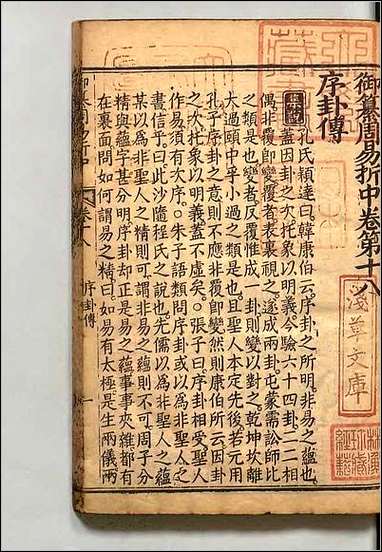 御纂周易折中卷第十八
序卦傳
集說
孔氏穎達曰韓康伯云序卦之所明非易之蘊也
蓋因卦之次托象以明義今驗六十四卦二二相
偶非覆即變覆者表裏視之遂成兩卦屯蒙需訟師比
之類是也變者反覆惟成一卦則變以對之乾坤坎離
大過頤中孚小過之類是也且聖人本定先後若元用
孔子序卦之意則不應非覆即變然則康伯所云因卦
之次托象以明義蓋不虛矣○張子曰序卦相受聖人
作易須有次序○朱子語類問序卦或以為非聖人之
書信乎曰此沙隨程氏之說也先儒以為非聖人之蘊
某以為非聖人之精則可謂非易之蘊則不可周子分
精與蘊字甚分明序卦却正是易之蘊事事夾雜都有
在裏面問如何謂易之精曰如易有太極是生兩儀兩
御纂周易折中
卷十八
序卦傳
一
淺草文庫